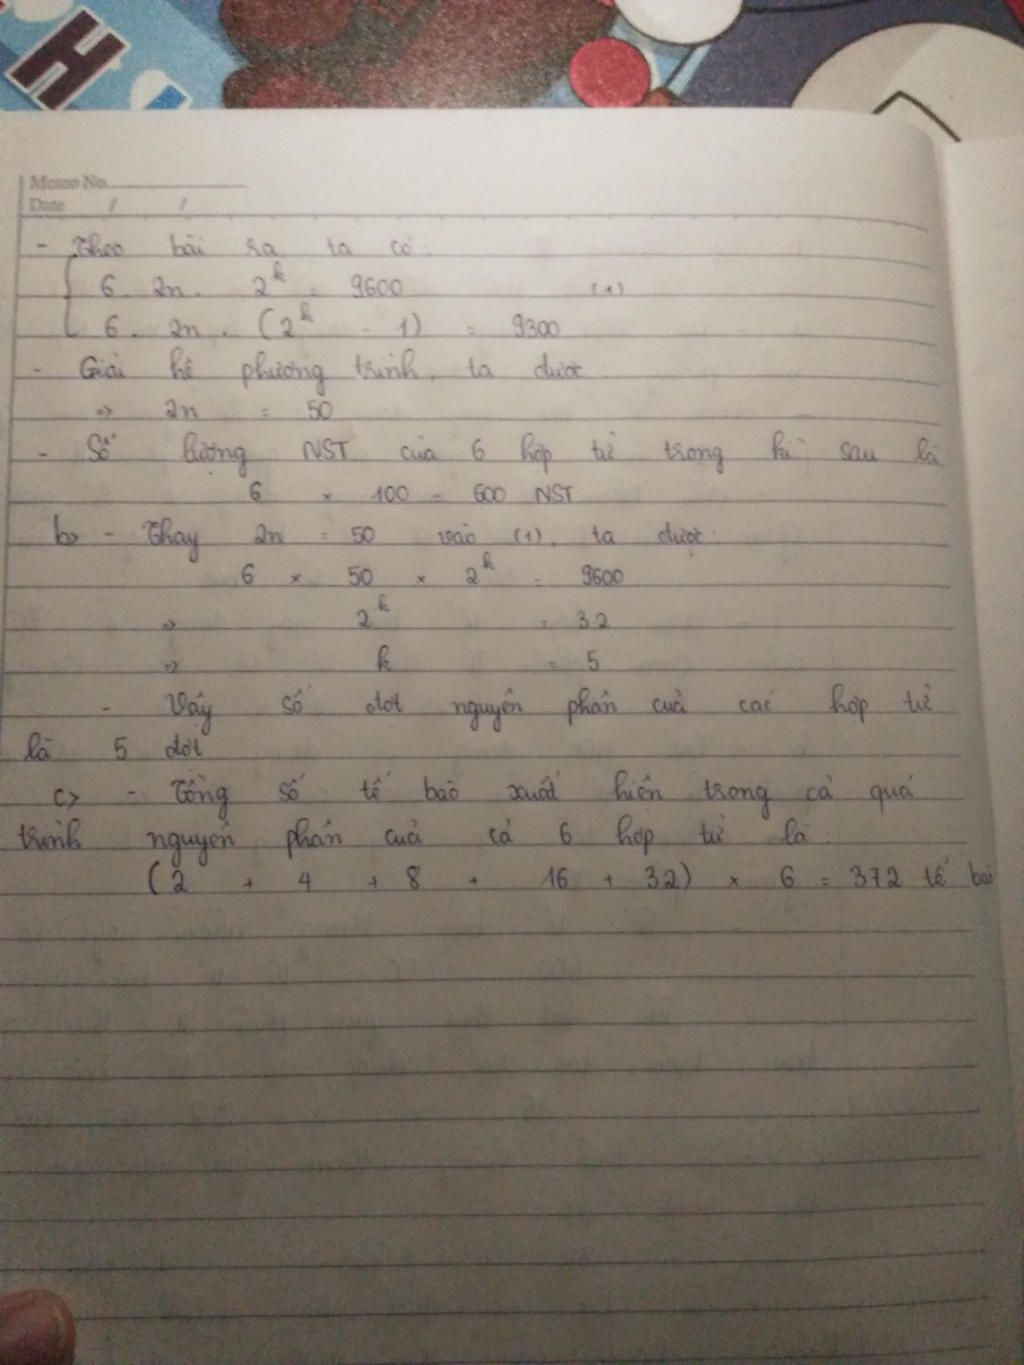 H
Memo No.
Date / /
- Theo bài ra ta có:
6. 2n. 2^k = 9600 (1)
6. 2n. (2^k - 1) = 9300
- Giải hệ phương trình, ta được:
=> 2n = 50
- Số lượng NST của 6 hợp tử trong kì sau là
6 × 100 = 600 NST
b> - Thay 2n = 50 vào (1), ta được:
6 × 50 × 2^k = 9600
=> 2^k = 32
=> k = 5
- Vậy số đợt nguyên phân của các hợp tử
là 5 đợt
c> - Tổng số tế bào xuất hiện trong cả quá
trình nguyên phân của cả 6 hợp tử là:
(2 + 4 + 8 + 16 + 32) × 6 = 372 tế bào